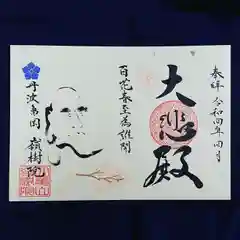 奉拝 令和四年四月
大悲殿
百花春至為誰開
丹波帯岡 巌樹院